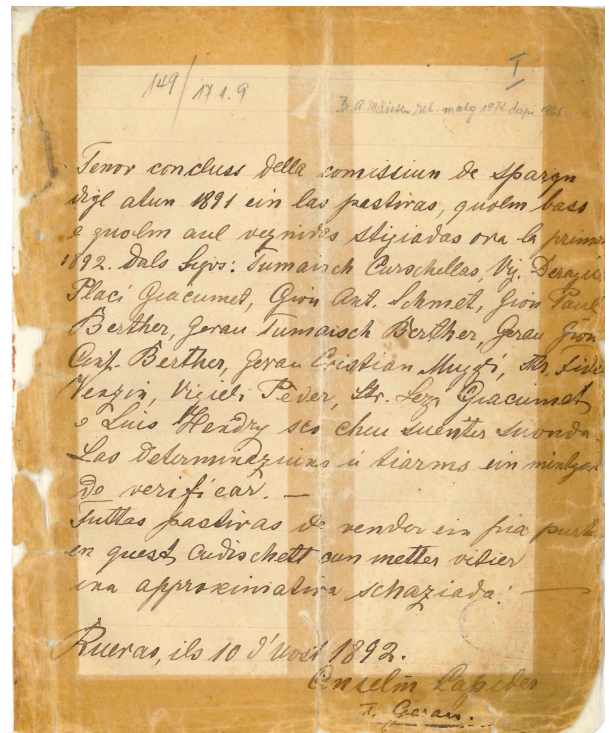 149/17 1.9
I
Dr. A. Maissen
Tenor concluss della comissiun de spargn
digl atun 1891 ein las pastiras, quolm bass
e quolm ault vegnidas stigiadas ora la prima
1892. Dals Sgrs: Tumaisch Curschellas, Vig. Derag
Placi Giacumet, Gion Ant. Schmet, Gion Paul
Berther, Gerau Tumaisch Berther, Gerau Gion
Ant. Berther, Gerau Cristian Muggi, Mr. Fide
Venzin, Vigieli Peder, Str. Lezi Giacumet
e Luis Hendry sco cheu suenter suonda
Las determinaziuns u tiarms ein
de verificar. —
Tuttas pastiras de vender ein
en quest cudischett cun metter vitier
ina approximativa schaziada: —
Rueras, ils 10 d'Uost 1892.
Anselm Capeder
T. Gerau.